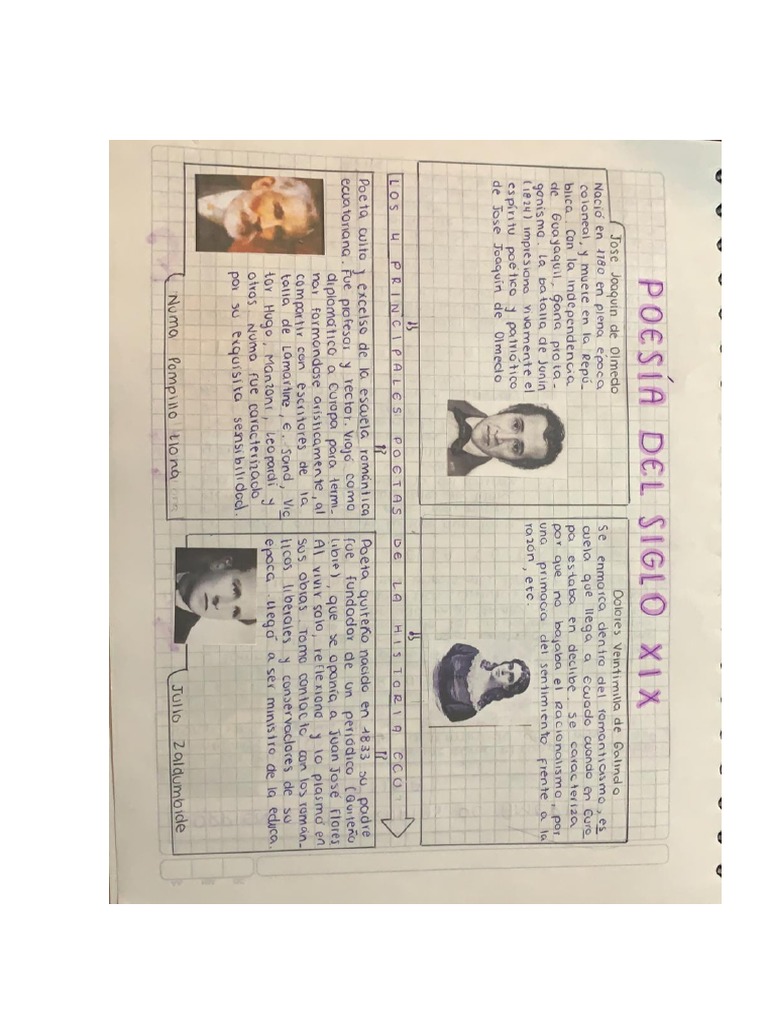 POESÍA DEL SIGLO XIX
Jose Joaquín de Olmedo
Nació en 1780 en plena epoca
coloneal, y muere en la Repú-
blica. Con la independencia
de Guayaquil, Gana prota-
gonismo. La batalla de Junin
(1824) impresiona vivamente el
espíritu poetico y patriótico
de Jose Joaquin de Olmedo
Dolores Veintimilla de Galindo
Se enmarca dentro del romanticismo, es
cuela que llega a Ecuado cuando en Euro
pa estaba en declibe. Se caracteriza
por que no bajaba el racionalismo, por
una primacia del sentimiento frente a la
razón, etc.
LOS 4 PRINCIPALES POETAS DE LA HISTORIA ECU.
Poeta culto y excelso de la escuela romántica
ecuatoriana. Fue profesor y rector. Viajó como
diplomático a Europa para termi-
nar formandose arísticamente, al
compartir con escritores de la
talla de Lamartine, E. Sand, Vic
tor Hugo, Manzoni, Leopardi y
otros. Numa fue caracterizado
por su exquisita sensibilidad.
Numa Pompillo Llona
Poeta quiteño nacido en 1833 su padre
fue fundador de un periodico (Quiteño
libre), que se oponía a Juan José Flores
Al vivir solo, reflexiona y lo plasmó en
sus obras Tomo contacto con los román-
ticos liberales y conservadores de su
epoca. llegó a ser ministro de la educa.
Julio Zaldumbide